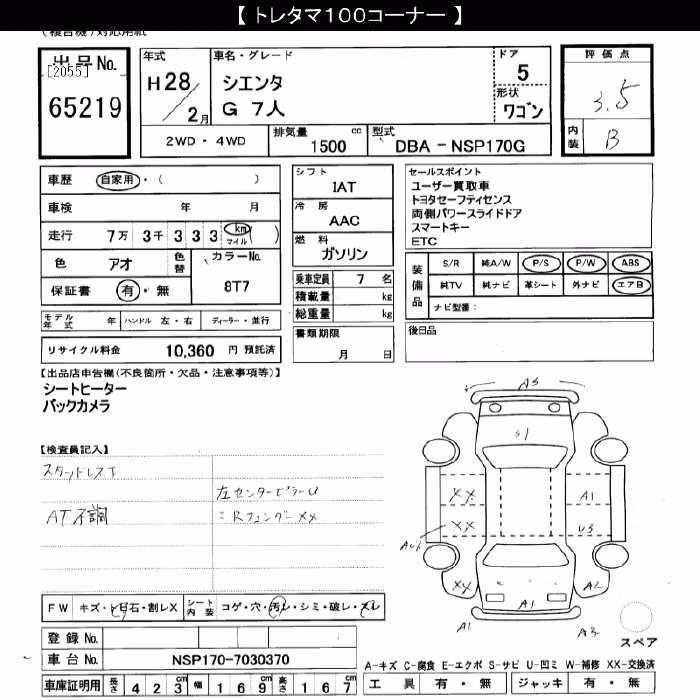 【 トレタマ100コーナー 】
(複合機)対応用紙
出品No.
[2055]
65219
年式
H28/2月
車名・グレード
シエンタ
G 7人
ドア
5
形状
ワゴン
2WD・4WD
排気量
1500 cc
型式
DBA - NSP170G
評価点
3.5
内装
B
車歴 自家用・( )
車検 年 月
走行 7万 3千 3 3 3 km マイル ( )
色 アオ
色替
カラーNo.
8T7
保証書 有・無
モデル年式 年 ハンドル 左・右 ディーラー・並行
リサイクル料金 10,360 円 預託済
シフト
IAT
冷房
AAC
燃料
ガソリン
乗車定員 7 名
積載量 kg
総重量 kg
書類期限
月 日
セールスポイント
ユーザー買取車
トヨタセーフティセンス
両側パワースライドドア
スマートキー
ETC
装備品
S/R 純A/W P/S P/W ABS
純TV 純ナビ 革シート 外ナビ エアB
ナビ型番:
後日品
【出品店申告欄(不良箇所・欠品・注意事項等)】
シートヒーター
バックカメラ
【検査員記入】
スタットレスT
AT不調
左センターピラーU
〃Rフェンダー XX
A3
S1
XX
XX
XX
A1
U3
A2
A1
A1
A3
スペア
FW キズ・ヒ石・割レX
シート内装 コゲ・穴・汚レ・シミ・破レ・スレ
登録No.
車台No. NSP170-7030370
車庫証明用 長さ 4 2 3cm 幅 1 6 9cm 高さ 1 6 7cm
A-キズ C-腐食 E-エクボ S-サビ U-凹ミ W-補修 XX-交換済
工具 有・無 ジャッキ 有・無